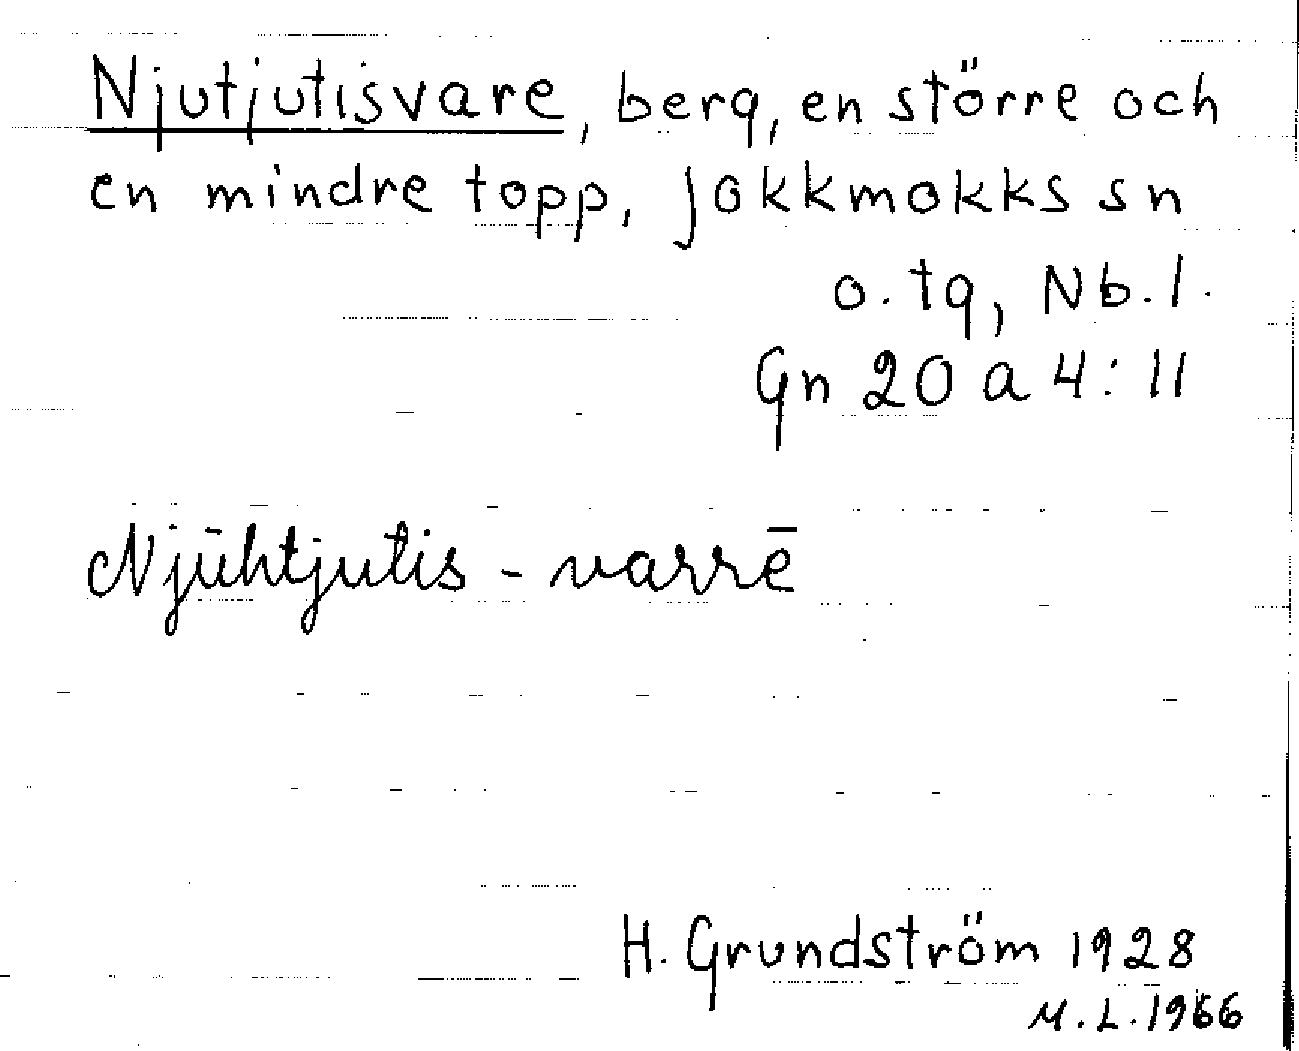 Njutjutisvare, berg, en större och
en mindre topp, Jokkmokks sn
o. tg, Nb. l.
Gn 20 a 4:11
Njūhtjutis - varrē
H. Grundström 1928
M. L. 1966